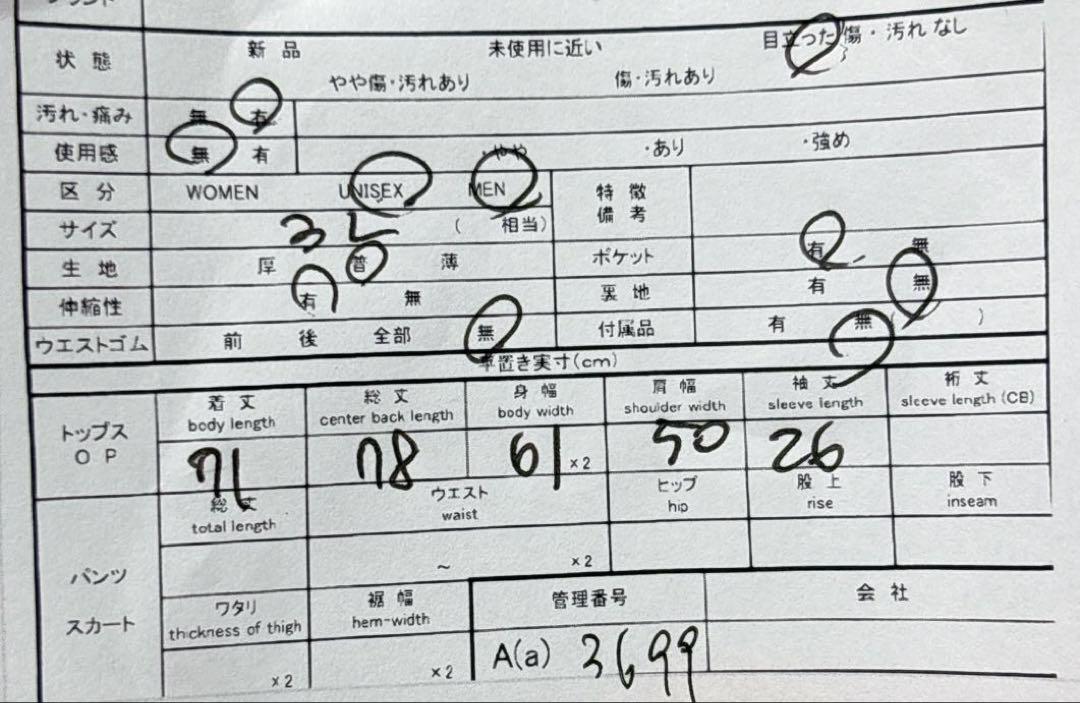 状態 新品 未使用に近い 目立った傷・汚れなし
やや傷・汚れあり 傷・汚れあり
汚れ・痛み 無 有
使用感 無 有 ・やや ・あり ・強め
区分 WOMEN UNISEX MEN 特徴備考
サイズ 3L ( 相当)
生地 厚 普 薄 ポケット 有 無
伸縮性 有 無 裏地 有 無
ウエストゴム 前 後 全部 無 付属品 有 無 ( )
平置き実寸(cm)
トップス OP
着丈 総丈 身幅 肩幅 袖丈 裄丈
body length center back length body width shoulder width sleeve length sleeve length (CB)
71 78 61 ×2 50 26
パンツ スカート
総丈 ウエスト ヒップ 股上 股下
total length waist hip rise inseam
~ ×2
ワタリ 裾幅 管理番号 会社
thickness of thigh hem-width
×2 ×2 A(a) 3699